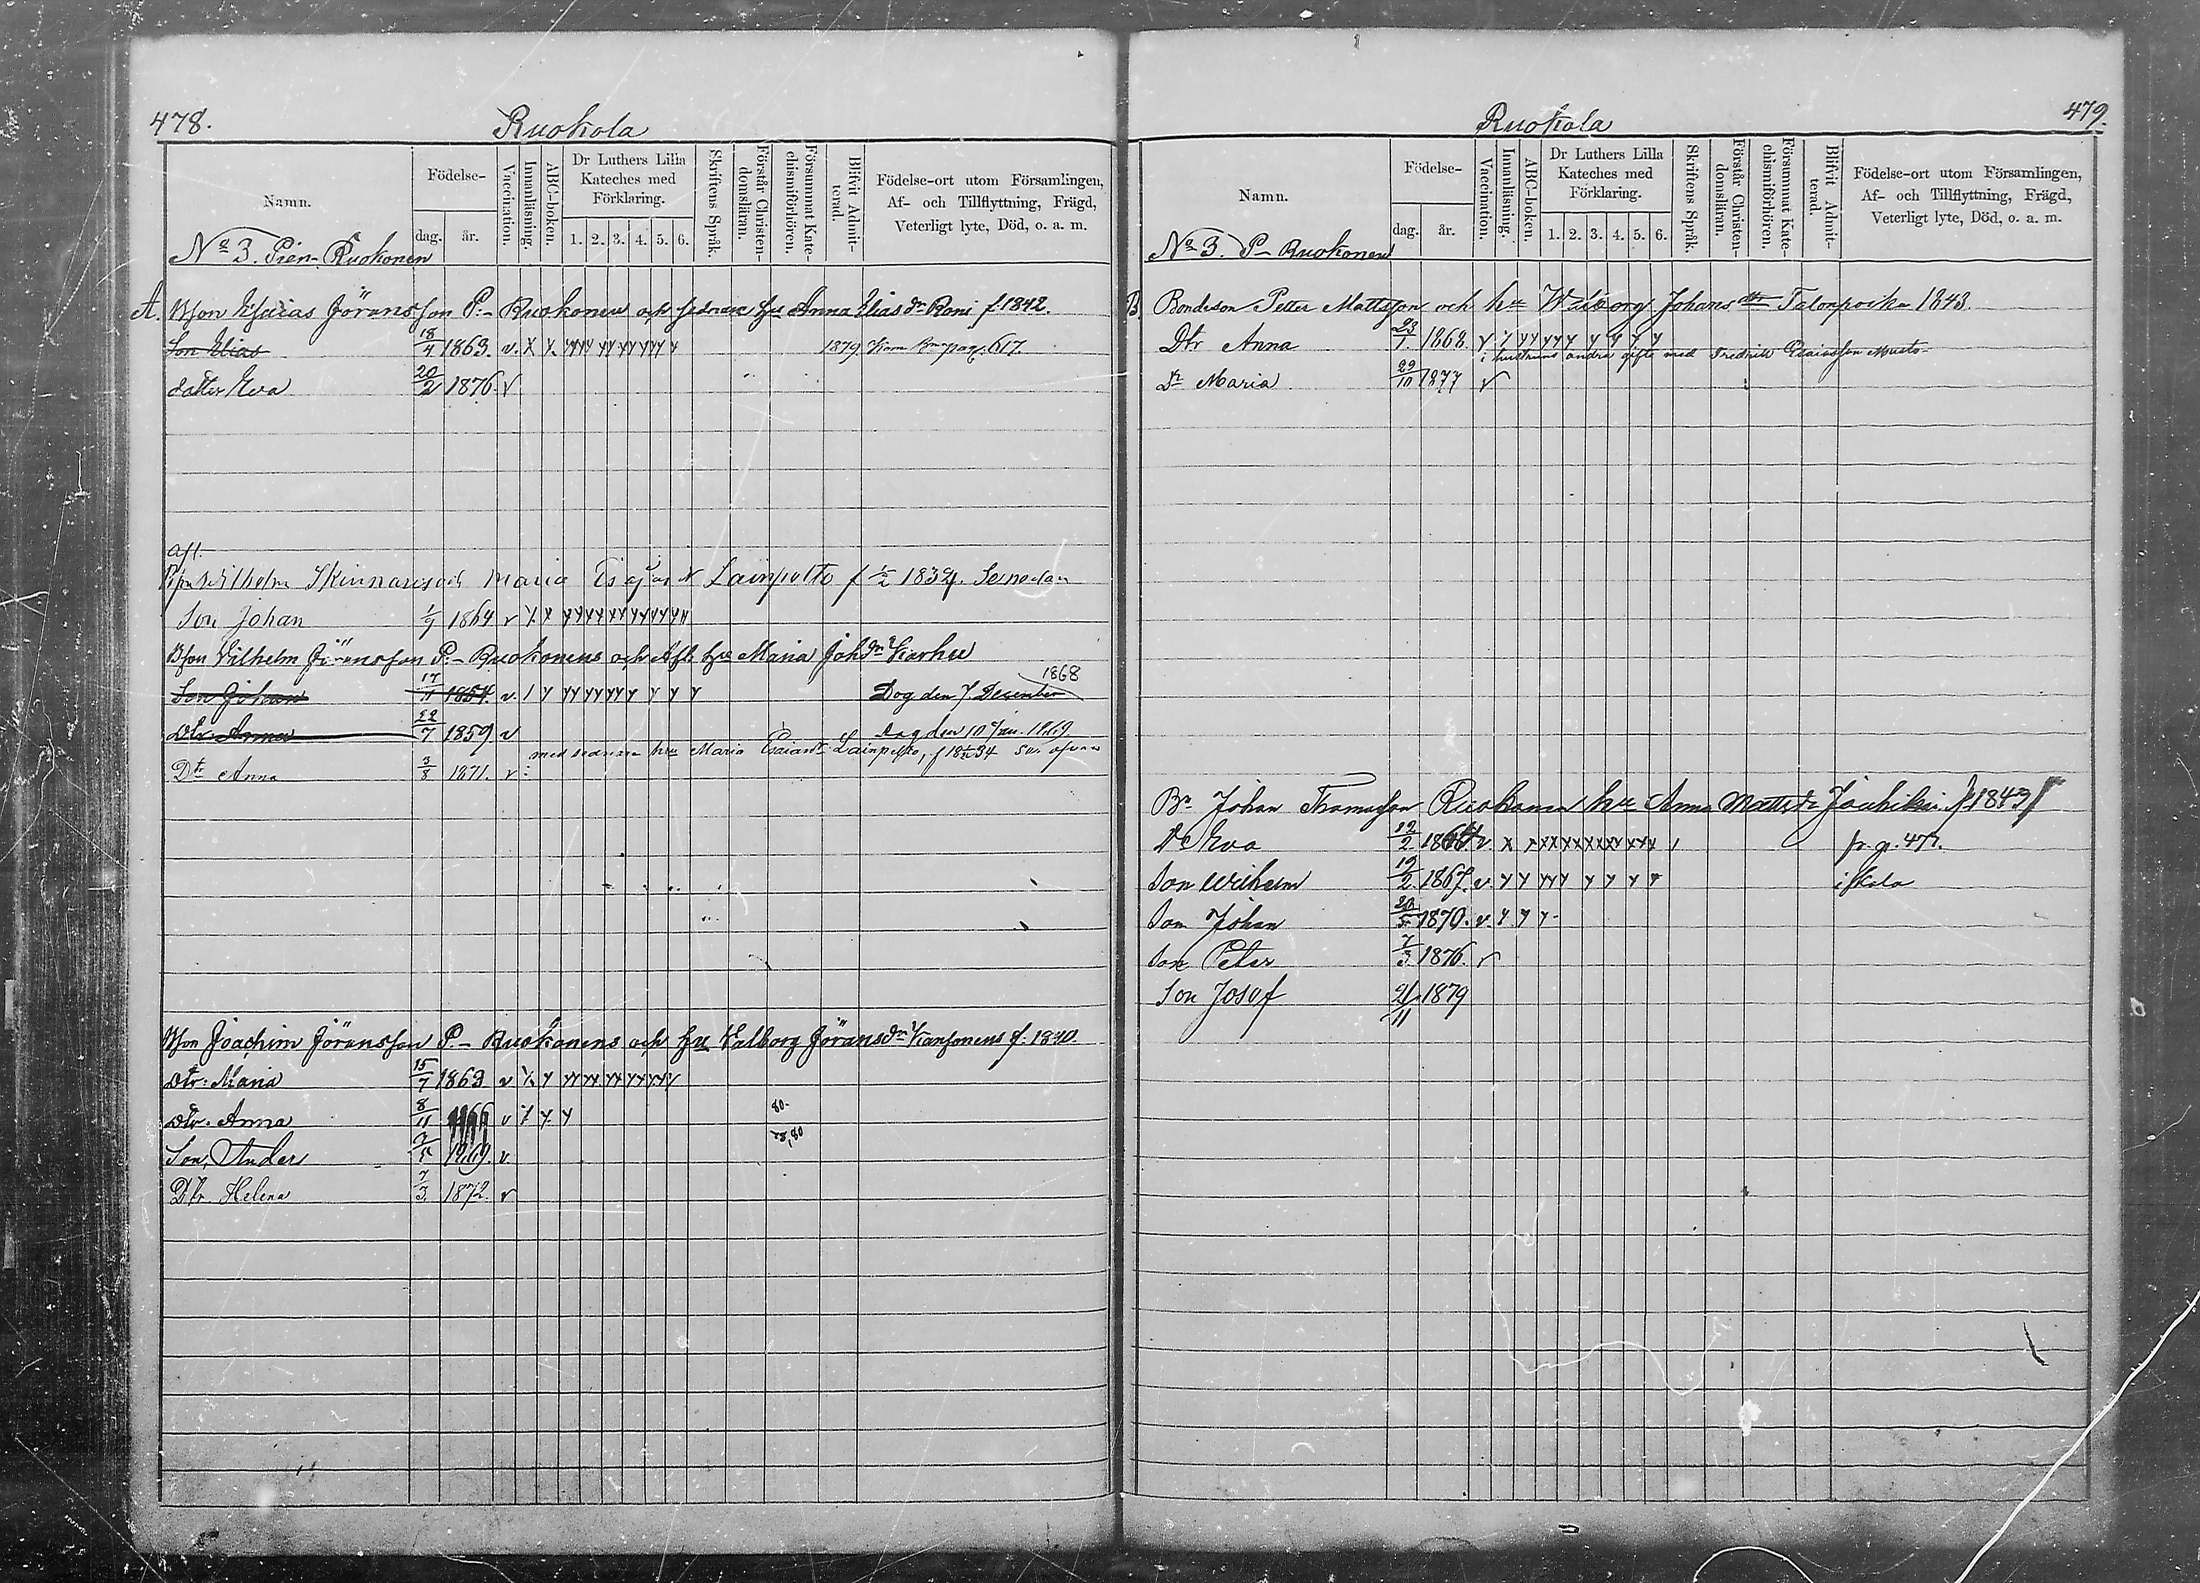 478.
Ruokola
Namn.
Födelse-
dag.
år.
Vaccination.
Innanläsning.
ABC-boken.
Dr Luthers Lilla Kateches med Förklaring.
1. 2. 3. 4. 5. 6.
Skriftens Språk.
Förstår Christendomsläran.
Försummat Katechismiförhören.
Blifvit Admitterad.
Födelse-ort utom Församlingen, Af- och Tillflyttning, Frägd, Veterligt lyte, Död, o. a. m.
No 3. Pien-Ruokonen
A. Bson Esaias Göransson P.- Ruokonen och hu Anna Elias dr Roni f 1842.
Son Elias 18/4 1863. v. 1879 pag. 617.
dotter Eva 20/2 1876. v
Afl.
Wilhelm Skinnari och Maria Lainpelto f 1/2 1834.
Son Johan 1/7 1864 v
Bson Vilhelm Göransson P.- Ruokonens och Afl. hu Maria Joh dr Karhu
Son Johan 17/1 1854. v. Dog den 7 December 1868
Dtr. Anna 22/7 1859 v Dog den 10 Jan. 1869
med sednare hu Maria Esaiasdr Lainpelto, f 18 1/2 34
Dtr Anna 3/8 1871. v
Bson Joachim Göransson P.- Ruokonens och hu Valborg Görans dr Kansonens f. 1840.
Dtr. Maria 15/7 1863 v
Dtr. Anna 8/11 v 80.
Son, Anders 1869. v. 78,80
Dtr. Helena 7/3 1872. v
479.
Ruokola
Namn.
Födelse-
dag.
år.
Vaccination.
Innanläsning.
ABC-boken.
Dr Luthers Lilla Kateches med Förklaring.
1. 2. 3. 4. 5. 6.
Skriftens Språk.
Förstår Christendomsläran.
Försummat Katechismiförhören.
Blifvit Admitterad.
Födelse-ort utom Församlingen, Af- och Tillflyttning, Frägd, Veterligt lyte, Död, o. a. m.
No 3. P- Ruokonen
B. Bondeson Petter Mattsson och hu Walborg Johans dtr Talonpoika 1843.
Dtr Anna 23/7 1868. v
i hustruns andra gifte med Fredrik Esaiasson
Dr Maria 29/10 1877 v
Johan Thomasson Ruokonen hu Anna Matts dr f 1843
Dr Eva 12/2 v. p. 477.
Son Wilhelm 19/2 1867. v. i skola
Son Johan 20/5 1870. v.
Son Peter 7/3 1876. v
Son Josef 21/11 1879